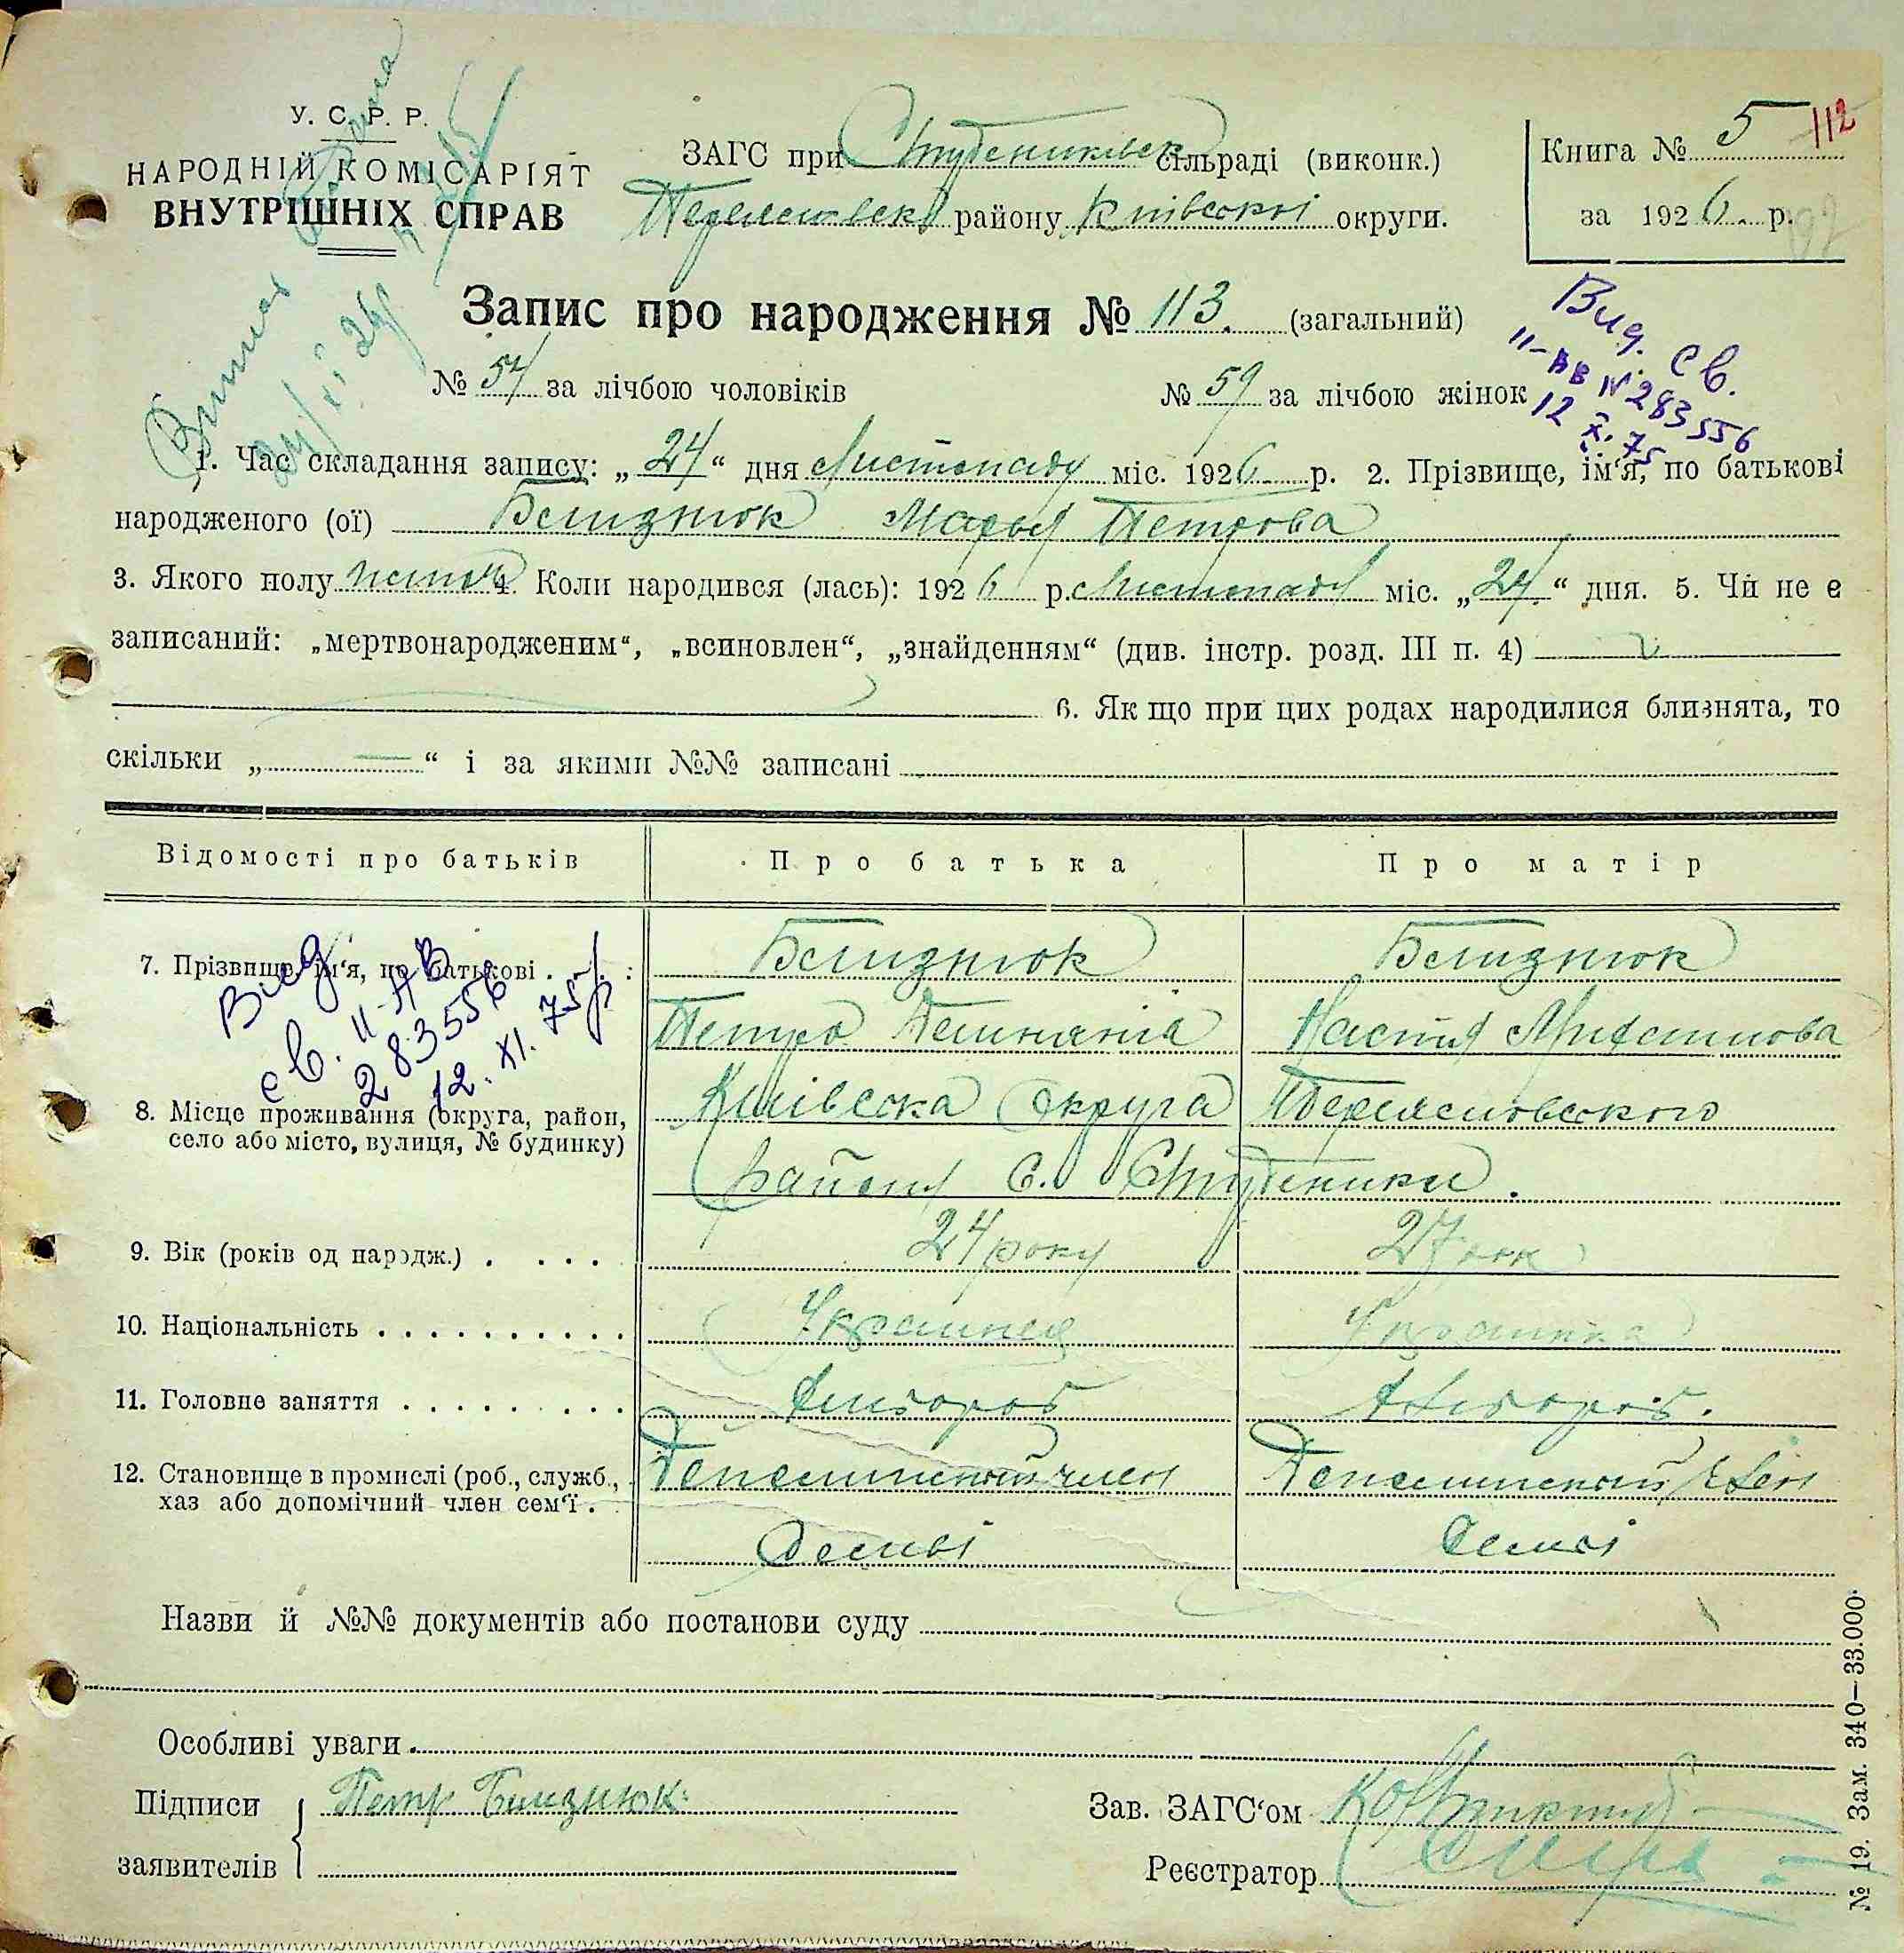 У. С. Р. Р.
НАРОДНІЙ КОМІСАРІЯТ
ВНУТРІШНІХ СПРАВ
ЗАГС при Студениківськ сільраді (виконк.)
Переясловськ району Київської округи.
Книга № 5 112
за 1926 р.
Запис про народження № 113. (загальний)
№ 54 за лічбою чоловіків № 59 за лічбою жінок
Вид. св.
II-ВВ № 283556
12.X.75
1. Час складання запису: „24“ дня Листопаду міс. 1926 р. 2. Прізвище, ім‘я, по батькові
народженого (ої) Близнюк Марья Петрова
3. Якого полу 4. Коли народився (лась): 1926 р. Листопада міс. „24“ дня. 5. Чи не є
записаний: „мертвонародженим“, „всиновлен“, „знайденням“ (див. інстр. розд. III п. 4)
6. Як що при цих родах народилися близнята, то
скільки „—“ і за якими №№ записані
Відомості про батьків Про батька Про матір
7. Прізвище, ім‘я, по батькові Близнюк Близнюк
Петро Настя
Вид
св. II-
283556
12.XI.75р.
8. Місце проживання (округа, район,
село або місто, вулиця, № будинку)
Київська округа Переясловського
району С. Студеники.
9. Вік (років од народж.) 24 року 27 рок
10. Національність Українец Українка
11. Головне заняття Хлібороб Хлібороб.
12. Становище в промислі (роб., служб.,
хаз або допомічний член сем‘ї . член член
Семьі Семьі
Назви й №№ документів або постанови суду
Особливі уваги
Підписи
заявителів
Петр Близнюк
Зав. ЗАГС‘ом
Реєстратор
№ 19. Зам. 340—33.000